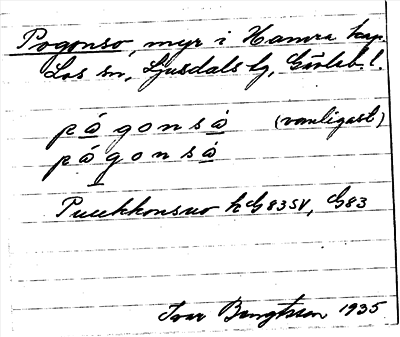 Pogonso, myr i Hamra kap.
Los sn, Ljusdals tg, Gävleb. l.
pågonså (vanligast)
pågonså
Puukkonsuo k G83SV, G83
Ivar Bengtsson 1935